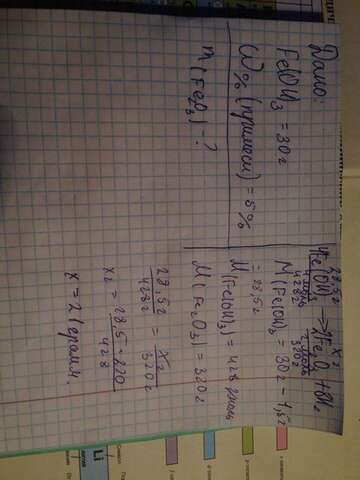 Дано:
Fe(OH)3 = 30г
W% (примеси) = 5%
m(Fe2O3) - ?
28,5г хг
4Fe(OH)3 → 2Fe2O3 + 6H2
4моль 2моль
428г 320г
M(Fe(OH)3 = 30г - 1,5г
= 28,5г
M(Fe(OH)3) = 428 г/моль
M(Fe2O3) = 320г
28,5г / 428г = хг / 320г
хг = 28,5 · 320 / 428
х = 21 грамм.
Li